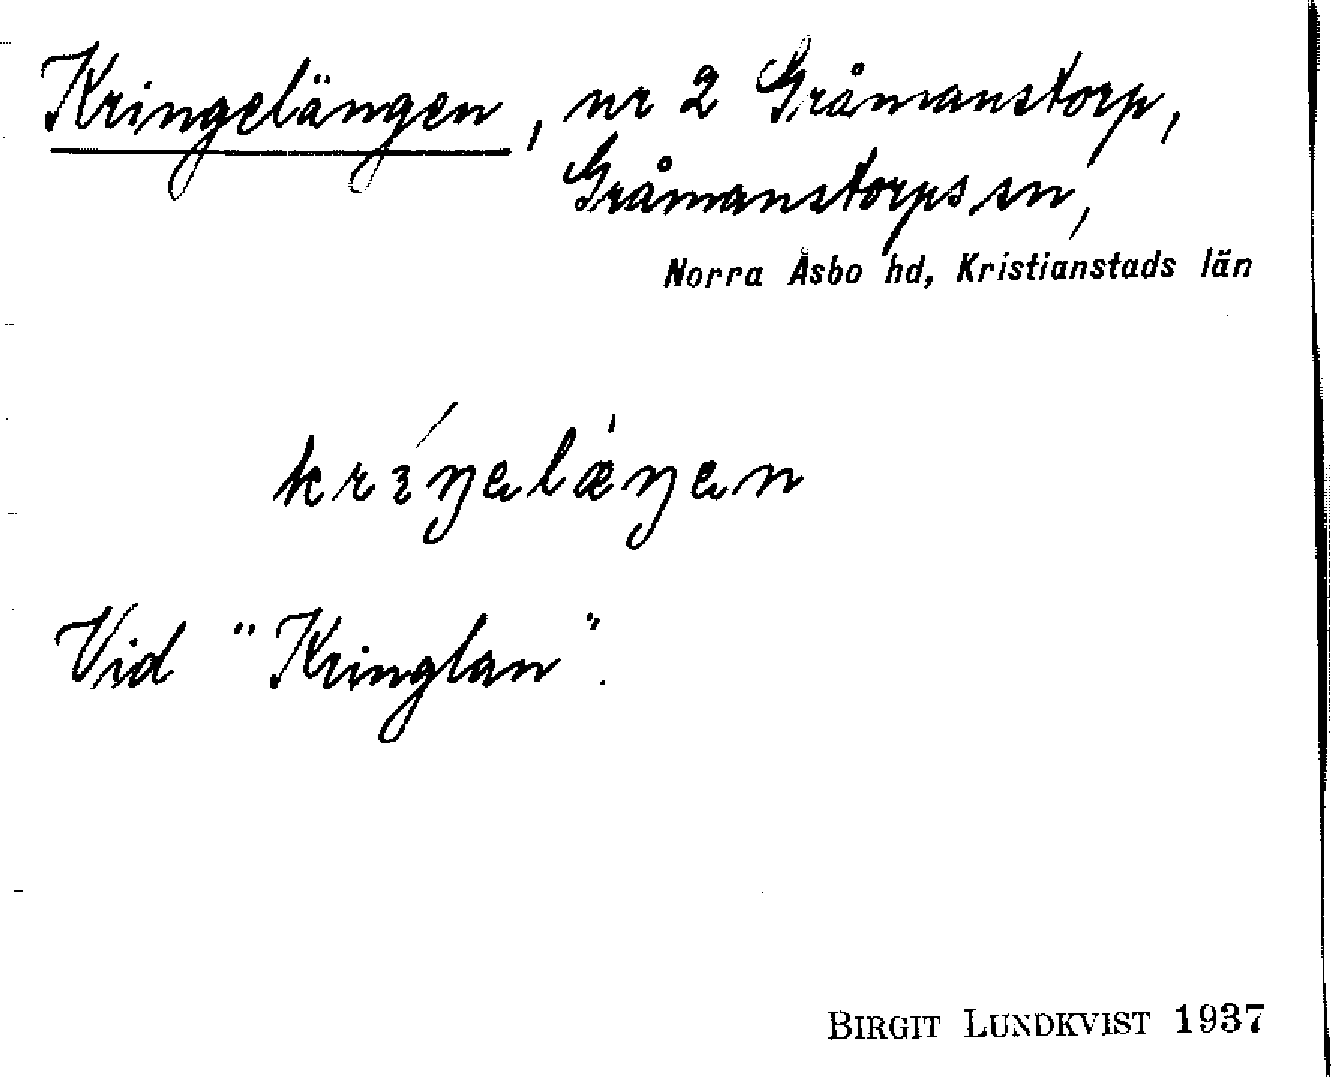 Kringelängen, nr 2 Gråmanstorp,
Gråmanstorps sn,
Norra Åsbo hd, Kristianstads län
krɪ́ŋəlæ̀ŋən
Vid "Kringlan".
BIRGIT LUNDKVIST 1937